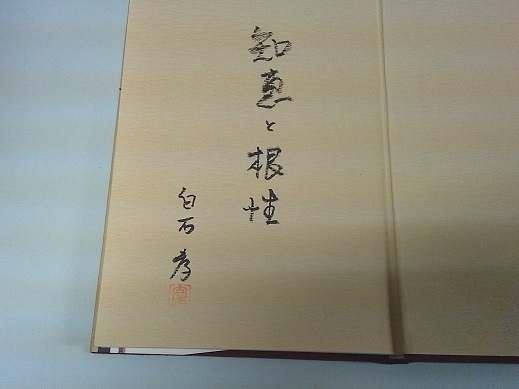 知恵と根性
白石孝